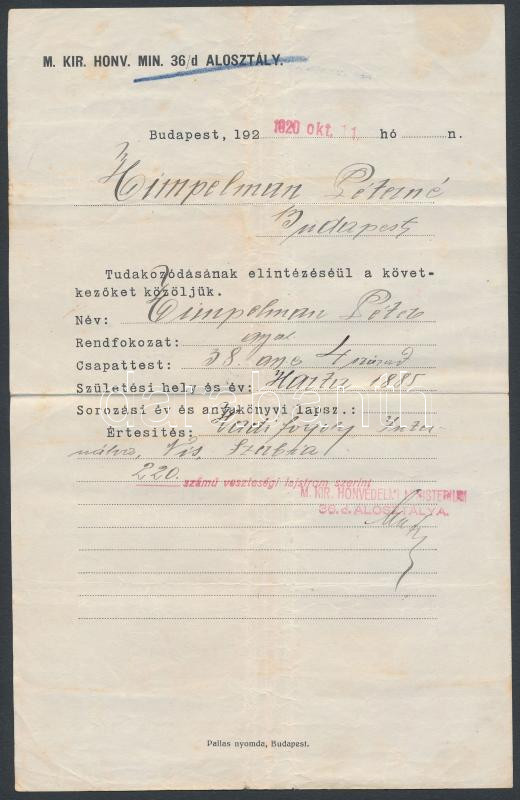 M. KIR. HONV. MIN. 36/d ALOSZTÁLY.
Budapest, 192 1920 okt. 11 hó n.
Himpelman Péterné
Budapest
Tudakozódásának elintézéséül a követ-
kezőket közöljük.
Név: Himpelman Péter
Rendfokozat: gyal.
Csapattest: 38. gye 4 század
Születési hely és év: Harta 1885
Sorozási év és anyakönyvi lapsz.:
Értesítés: Hadifogoly Inter-
nálva, Nis, Szerbia
220. számú veszteségi lajstrom szerint
M. KIR. HONVÉDELMI MINISTERIUM
36.d. ALOSZTÁLYA.
darabanth
Pallas nyomda, Budapest.